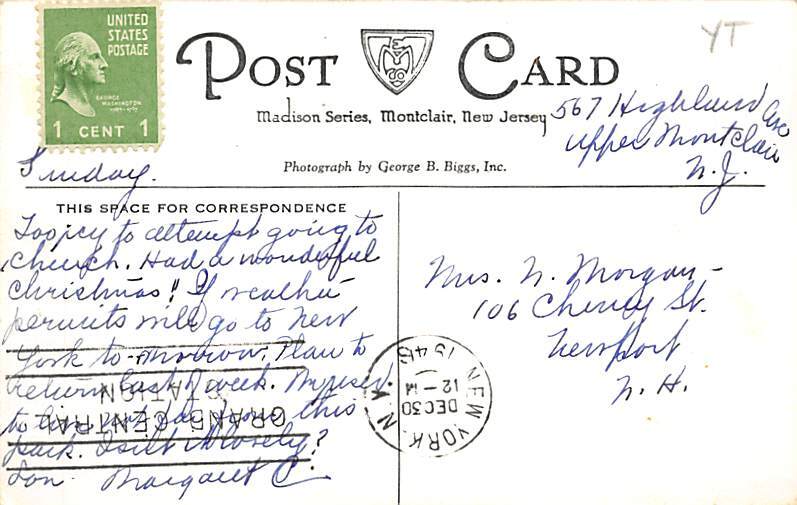 UNITED
STATES
POSTAGE
GEORGE
WASHINGTON
1 CENT 1
YT
POST CARD
Madison Series, Montclair, New Jersey
Photograph by George B. Biggs, Inc.
567 Highland Ave
Upper Montclair
N.J.
Sunday.
THIS SPACE FOR CORRESPONDENCE
Too icy to attempt going to
Church. Had a wonderful
Christmas! If weather
permits will go to New
York to-morrow. Plan to
return last of week.
to this
park. Isn't it lovely?
Margaret C.
Mrs. N. Morgan -
106 Cheney St.
Newport
N. H.
NEW YORK N.Y.
DEC 30
12-M
1946
GRAND CENTRAL
STATION